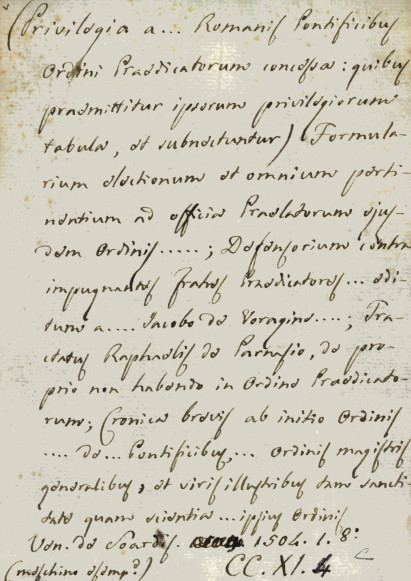 (Privilegia a... Romanis Pontificibus
Ordini Praedicatorum concessa: quibus
praemittitur ipsorum privilegiorum
tabula, et subnectuntur) Formula-
rium electionum et omnium perti-
nentium ad officia Praelatorum ejus-
dem Ordinis.....; Defensorium contra
impugnantes fratres Praedicatores... edi-
tum a.... Jacobo de Voragine....; Tra-
ctatus Raphaelis de Parnasio, de pro-
prio non habendo in Ordine Praedicato-
rum; Cronica brevis ab initio Ordinis
.... de... Pontificibus,... Ordinis magistris
generalibus, et viris illustribus tam sancti-
tate quam scientia... ipsius Ordinis
Ven. de Scardis. 1504. 1. 8.
(meschino esemp.)
CC. XI. 4